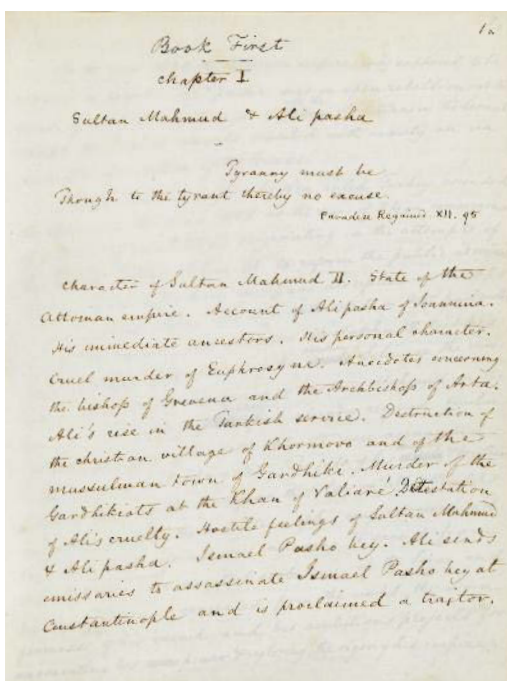 1a
Book First
Chapter I
Sultan Mahmud & Ali pasha
Tyranny must be
Though to the tyrant thereby no excuse
Paradise Regained XII. 95
Character of Sultan Mahmud II. State of the
Ottoman empire. Account of Ali pasha of Ioannina.
His immediate ancestors. His personal character.
Cruel murder of Euphrosyne. Anecdotes concerning
the bishop of Grevena and the Archbishop of Arta.
Ali's rise in the Turkish service. Destruction of
the christian village of Khormovo and of the
mussulman town of Gardhiki. Murder of the
Gardhikiots at the Khan of Valiaré. Detestation
of Ali's cruelty. Hostile feelings of Sultan Mahmud
& Ali pasha. Ismael Pasho bey. Ali sends
emissaries to assassinate Ismael Pasho bey at
Constantinople and is proclaimed a traitor.